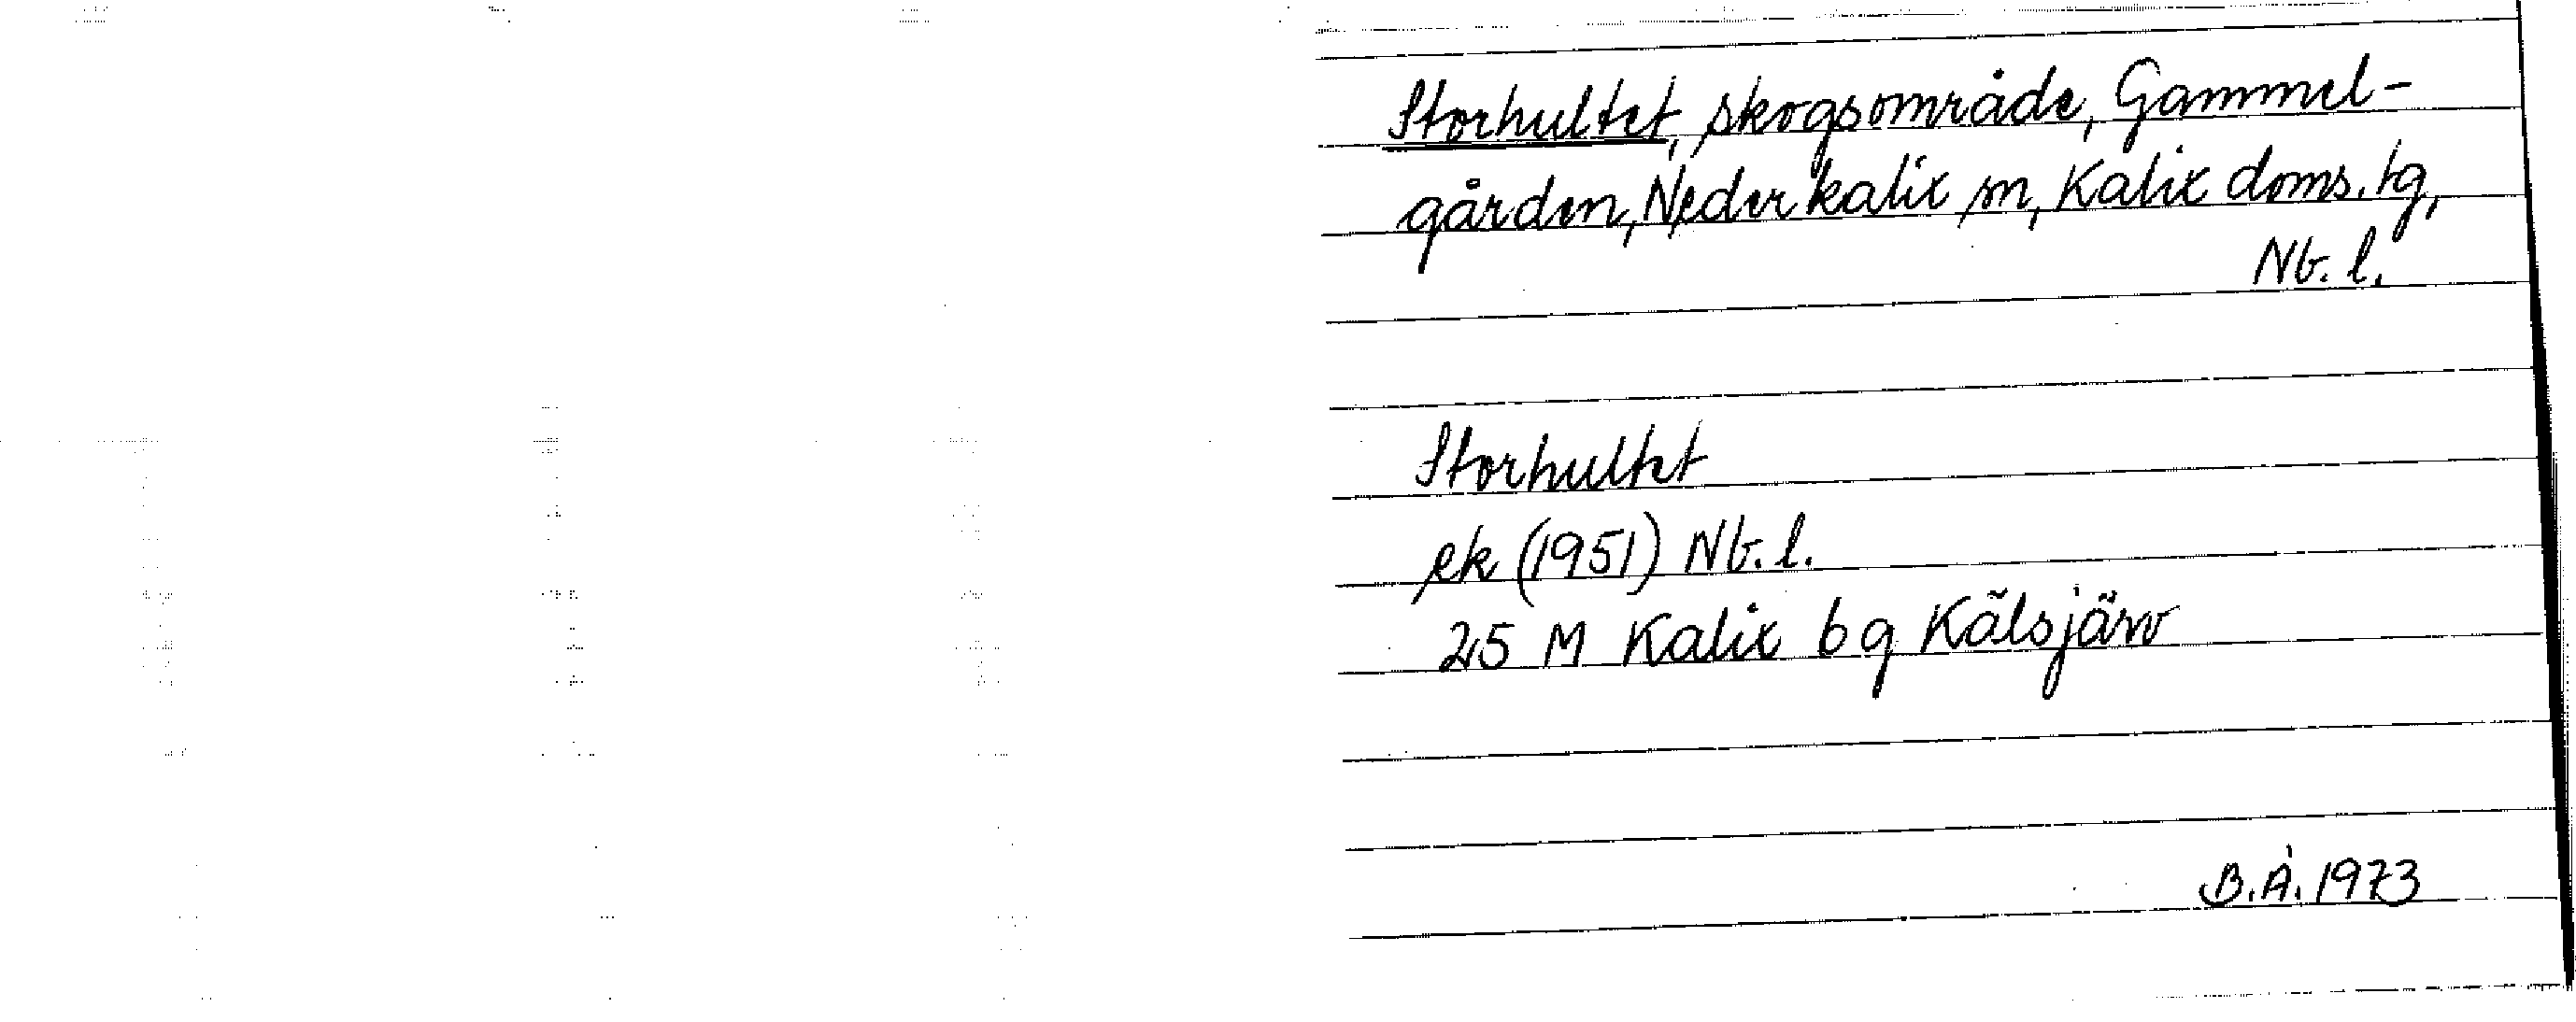 Storhultet, skogsområde, Gammel-
gården, Nederkalix sn, Kalix doms. tg,
Nb. l.
Storhultet
ek (1951) Nb. l.
25 M Kalix 6 g Kälsjärv
B.Å. 1973